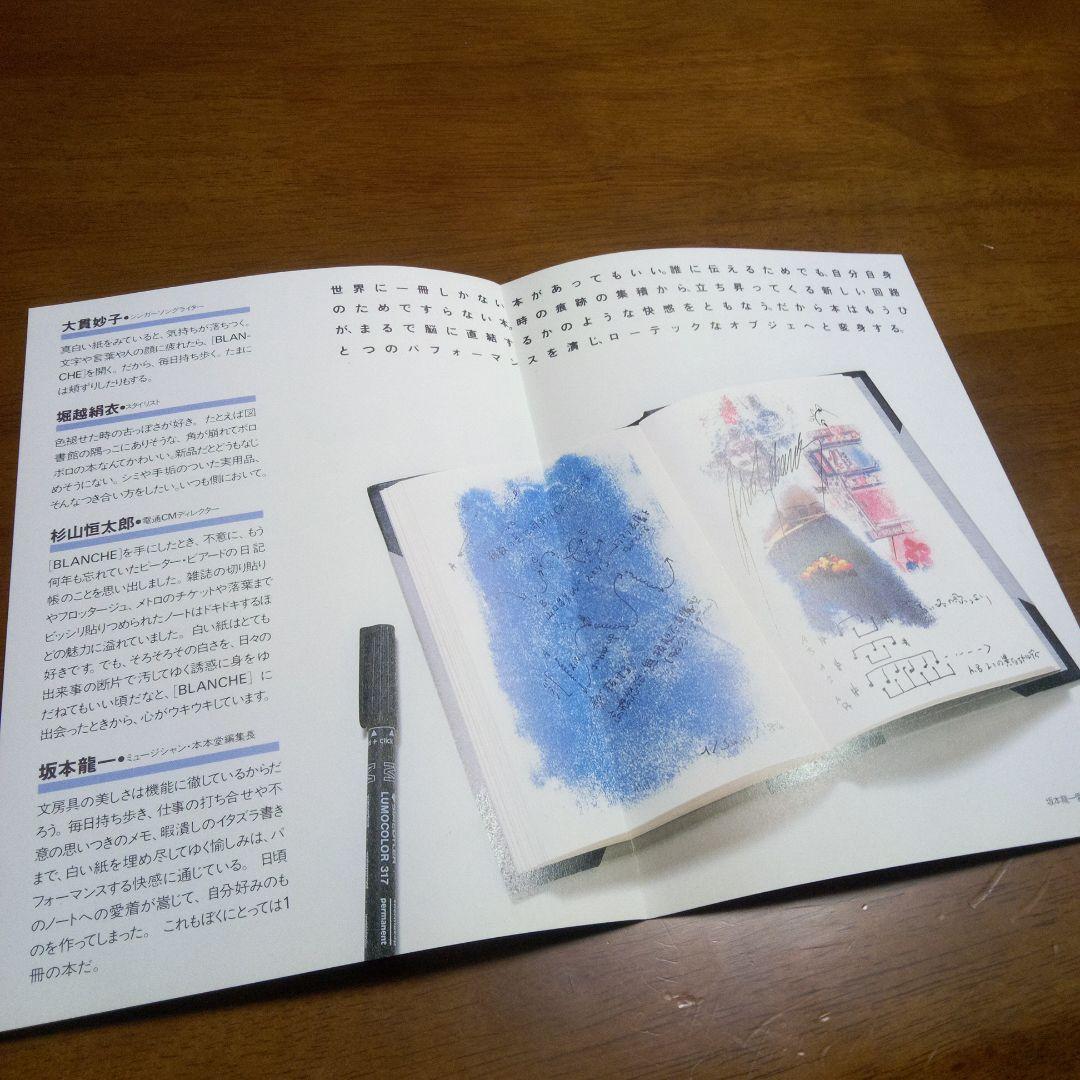 大貫妙子●シンガーソングライター
真白い紙をみていると、気持ちが落ちつく。
文字や言葉や人の顔に疲れたら、[BLAN-
CHE]を開く。だから、毎日持ち歩く。たまに
は頬ずりしたりもする。
堀越絹衣●スタイリスト
色褪せた時の古っぽさが好き。たとえば図
書館の隅っこにありそうな、角が崩れてボロ
ボロの本なんてかわいい。新品だとどうもなじ
めそうにない。シミや手垢のついた実用品、
そんなつき合い方をしたい。いつも側において。
杉山恒太郎●電通CMディレクター
[BLANCHE]を手にしたとき、不意に、もう
何年も忘れていたピーター・ビアードの日記
帳のことを思い出しました。雑誌の切り貼り
やフロッタージュ、メトロのチケットや落葉まで
ビッシリ貼りつめられたノートはドキドキするほ
どの魅力に溢れていました。白い紙はとても
好きです。でも、そろそろその白さを、日々の
出来事の断片で汚してゆく誘惑に身をゆ
だねてもいい頃だなと、[BLANCHE]に
出会ったときから、心がウキウキしています。
坂本龍一●ミュージシャン・本本堂編集長
文房具の美しさは機能に徹しているからだ
ろう。毎日持ち歩き、仕事の打ち合せや不
意の思いつきのメモ、暇潰しのイタズラ書き
まで、白い紙を埋め尽してゆく愉しみは、パ
フォーマンスする快感に通じている。日頃
のノートへの愛着が嵩じて、自分好みのも
のを作ってしまった。これもぼくにとっては1
冊の本だ。
世界に一冊しかない本があってもいい。誰に伝えるためでも、自分自身
のためですらない本。時の痕跡の集積から、立ち昇ってくる新しい回路
が、まるで脳に直結するかのような快感をともなう。だから本はもうひ
とつのパフォーマンスを演じ、ローテックなオブジェへと変身する。
M
LUMOCOLOR 317
permanent
坂本龍一